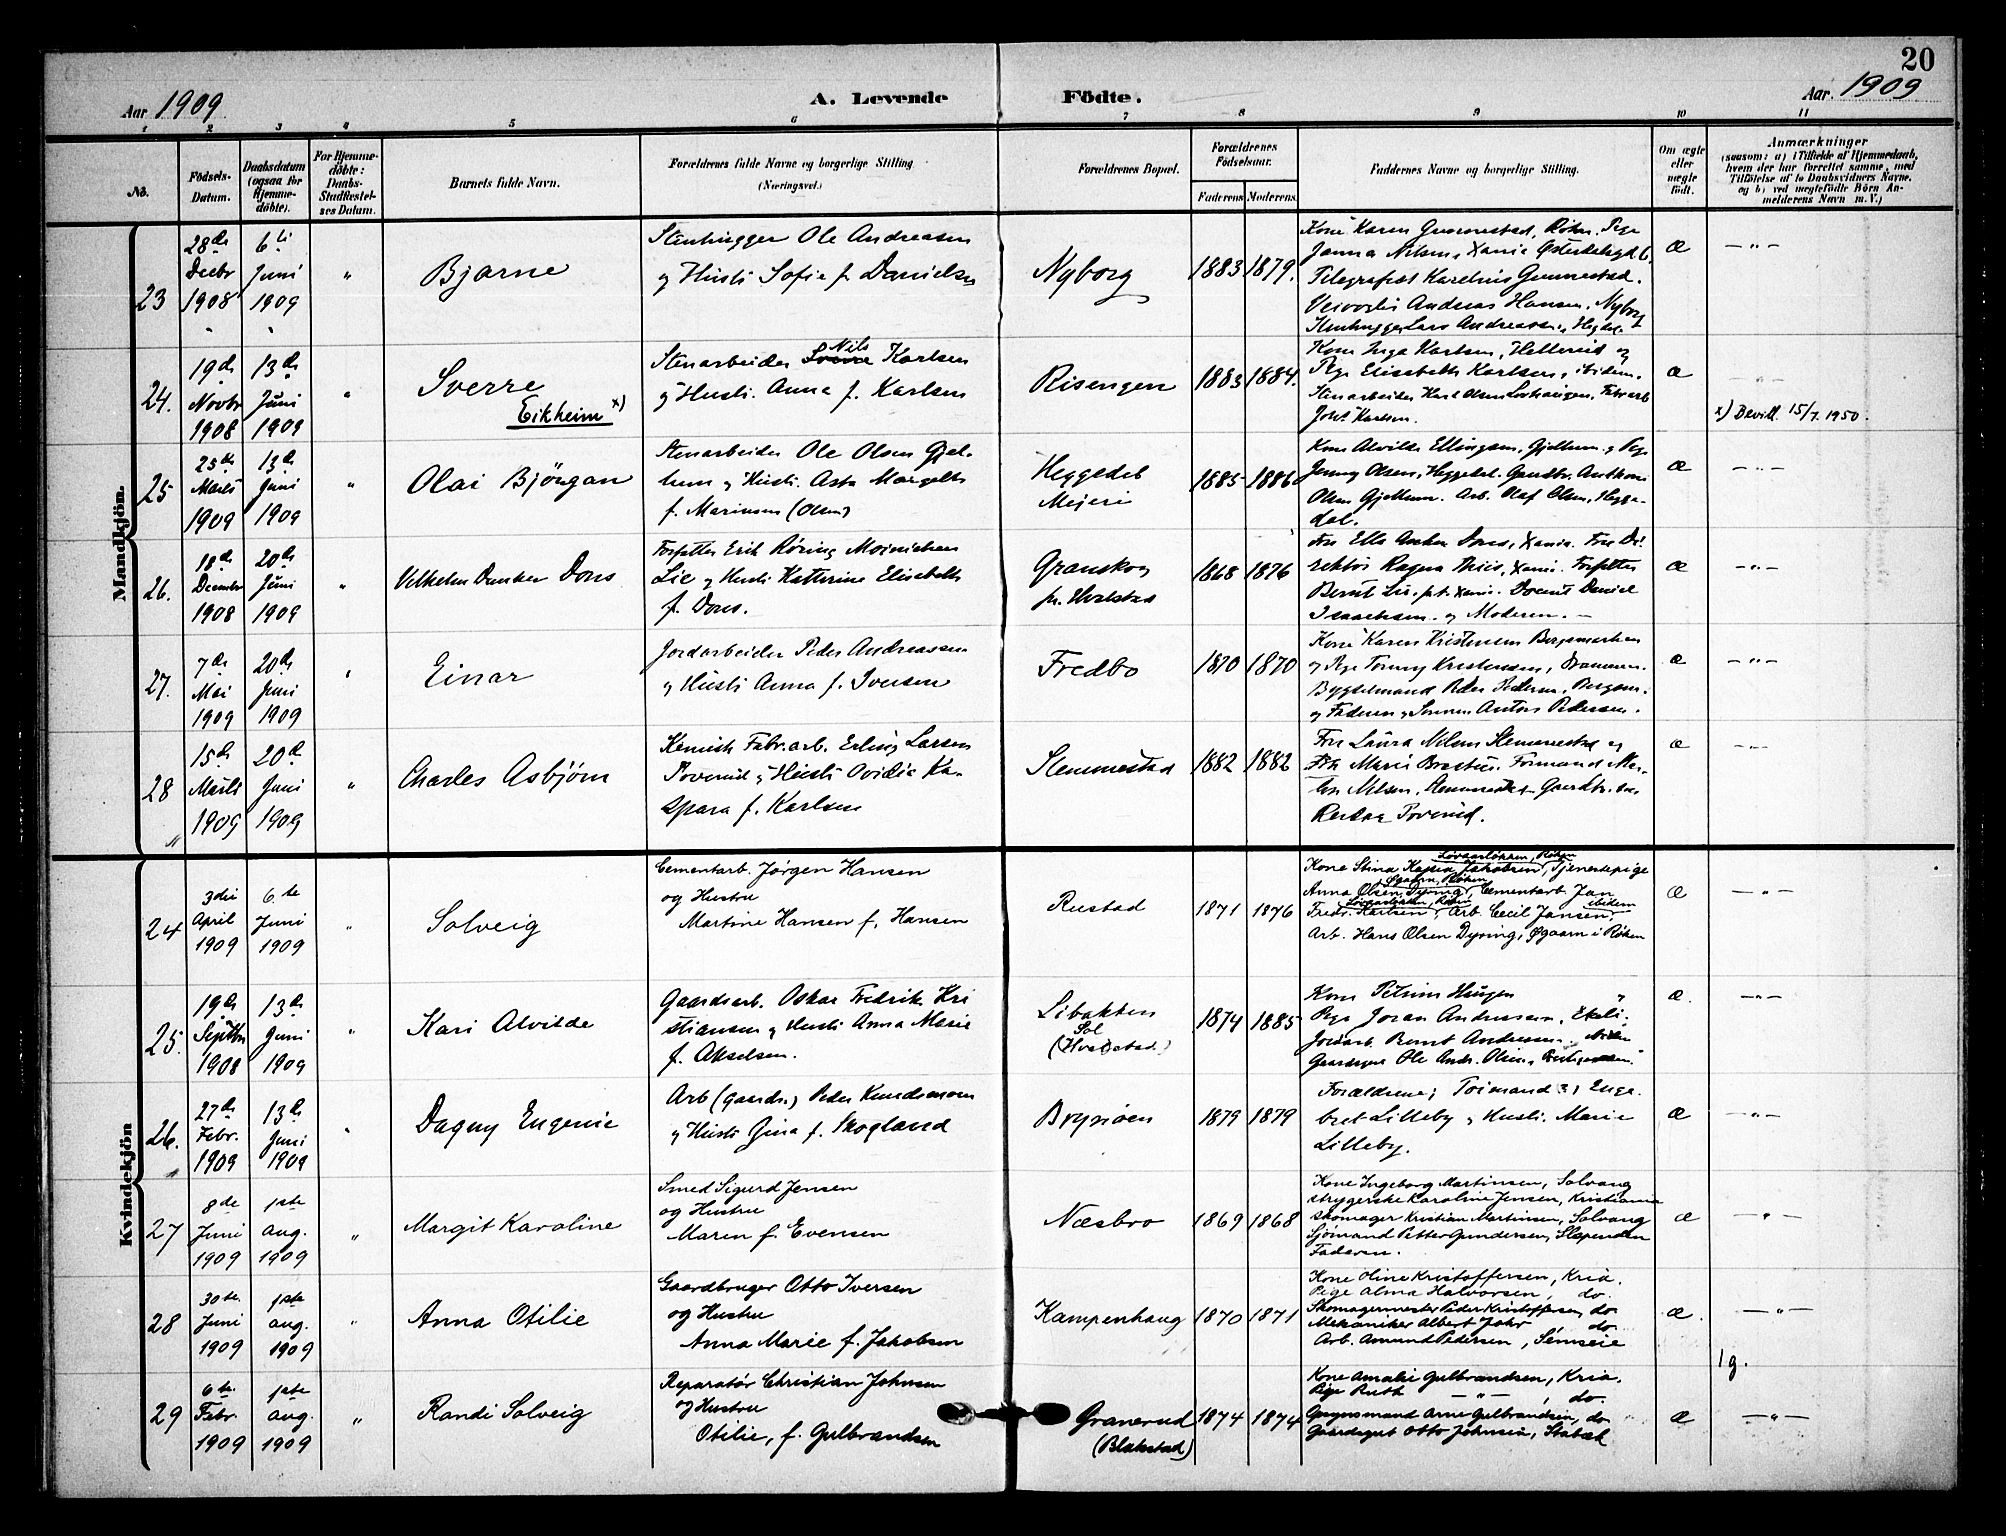 20
Aar 1909
A. Levende Födte.
Aar 1909
1 2 3 4 5 6 7 8 9 10 11
No.
Födsels-Datum.
Daabsdatum (ogsaa for Hjemme-döbte).
For Hjemme-döbte: Daabs-Stadfæstel-ses Datum.
Barnets fulde Navn.
Forældrenes fulde Navne og borgerlige Stilling (Næringsvei.)
Forældrenes Bopæl.
Forældrenes Födselsaar.
Faderens Moderens
Faddernes Navne og borgerlige Stilling.
Om ægte eller uægte födt.
Anmærkninger
(saasom: a) i Tilfælde af Hjemmedaab, hvem der har forrettet samme, med Tilföielse af to Daabsvidners Navne, og b) ved uægtefödte Börn An-melderens Navn m. V.)
Mandkjön.
23
28de Decbr 1908
6te Juni 1909
"
Bjarne
Stenhugger Ole Andreasen
og Hustr. Sofie f. Danielsen
Nyborg
1883 1879.
Kone Karen Gunnestad, Röken. Pige
Janna Nilsen, Xania
Telegrafist Karelius Gunnestad.
Veivogter Andreas Hansen, Nyborg
Stenhugger Lars Andreassen, Heggedal
æ
—"—
24.
19de Novbr 1908
13de Juni 1909
"
Sverre
Eikheim x)
Stenarbeider Nils Karlsen
og Hustr. Anna f. Karlsen
Risengen
1883 1884.
Kone Inga Karlsen, Hellerud og
Pige Elisabeth Karlsen, ibidem.
Stenarbeider Karl Olsen
Johs Karlsen.
æ
—"—
x) Bevill. 15/7 1950.
25
25de Marts 1909
13de Juni 1909
"
Olai Bjórgan
Stenarbeider Ole Olsen Gjel-
lum og Hustr. Asta Margith
f. Marinsen (Olsen)
Heggedal
Mejeri
1885 1886
Kone Alvilde Ellingsen, Gjellum. og Pige
Jenny Olsen, Heggedal. Gaardbr.
Olsen Gjellum. Arb. Olaf Olsen, Hegge-
dal.
æ
—"—
26.
18de December 1908
20de Juni 1909
"
Vilhelm Dunker Dons
Forfatter Erik Röring Moinichen
Lie og Hustr. Katharine Elisabeth
f. Dons.
Granskog
pr. Hvalstad
1868 1876
Fru Ella Anker Dons, Xania. Fru Di-
rektör Ragna Thiis, Xania. Forfatter
Bernt Lie, p.t. Xania. Docent Daniel
Isaachsen. og Moderen. —
æ
—"—
27.
7de Mai 1909
20de Juni 1909
"
Einar
Jordarbeider Peder Andreassen
og Hustr. Anna f. Iversen
Fredbo
1870 1870
Kone Karen Kristensen Bergsmarken
og Pige Tommy Kristensen, Drammen.
Bygselmand Peder Pedersen, Bergsm.
og Faderen og Sönnen Anton Pedersen.
æ
—"—
28
"
15de Marts 1909
20de Juni 1909
"
Charles Asbjörn
Kemisk Fabr.arb. Erling Larsen
Poverud og Hustr. Ovidia Ka-
spara f. Karlsen
Slemmestad
1882 1882
Fru Laura Nilsen Slemmestad og
Frk Marie Brastø. Formand Mar-
tin Nilsen, Slemmestad. Gaardbr.
Poverud.
æ
—"—
Kvindekjön
24
3die April 1909
6te Juni 1909
"
Solveig
Cementarb. Jørgen Hansen
og Hustru
Martine Hansen f. Hansen
Rustad
1871 1876
Løvaasløkken, Røken
Kone Stina Kajsa Jakobsen, Tjenestepige
Øgaarn, Røken
Anna Olsen Dyring, Cementarb. Jan
Løvaasløkken, Røken ibidem
Fredr. Karlsen, Arb. Cecil Jansen,
Arb. Hans Olsen Dyring, Øgaarn i Røken
æ
—"—
25.
19de Septbr 1908
13de Juni 1909
"
Kari Alvilde
Gaardsarb. Oskar Fredrik Kri
stiansen og Hustr. Anna Marie
f. Akselsen.
Libakken
Sol
(Hvalstad.)
1874 1885
Kone Petrine Haugen "
Pige Joran Andressen, Ekeli.
Jordarb. Bernt Andressen.
Gaardsgut Ole Andr. Olsen,
æ.
—"—
26.
"
27de Febr. 1909
13de Juni 1909
"
Dagny Eugenie
Arb (gaards.) Peder Knudsmoen
og Hustr. Gina f. Skogland
Brynsøen
1879 1879
Forældrene; Enge-
bret Lilleby og Hustr. Marie
Lilleby.
æ
—"—
27
8de Juni 1909
1ste aug. 1909
"
Margit Karoline
Smed Sigurd Jensen
og Hustru
Maren f. Evensen
Næsbro
1869 1868
Kone Ingeborg Martinsen, Solvang
Strygerske Karoline Jensen, Kristiania
Skomager Kristian Martinsen, Solvang
Sjömand Petter Gundersen, Slependen
Faderen.
æ
—"—
28
30te Juni 1909
1ste aug. 1909
"
Anna Otilie
Gaardbruger Otto Iversen
og Hustru
Anna Marie f. Jakobsen
Kampenhaug
1870 1871
Kone Oline Kristoffersen, Kria.
Pige Alma Halvorsen, do.
Skomagermester Peder Kristoffersen, do
Mekaniker Albert Johr do
Arb. Amund Pedersen, Semseie
æ.
—"—
29
6te Febr. 1909
1ste aug. 1909
"
Randi Solveig
Reparatör Christian Johnsen
og Hustru
Otilie, f. Gulbrandsen
Granerud
(Blakstad)
1874 1874
Kone Amalie Gulbrandsen, Kria.
Pige Ruth —"— , do.
Opsynsmand Arne Gulbrandsen, do
Gaardsgut Otto Johnsen, Stabæk
æ
1 g.
—"—